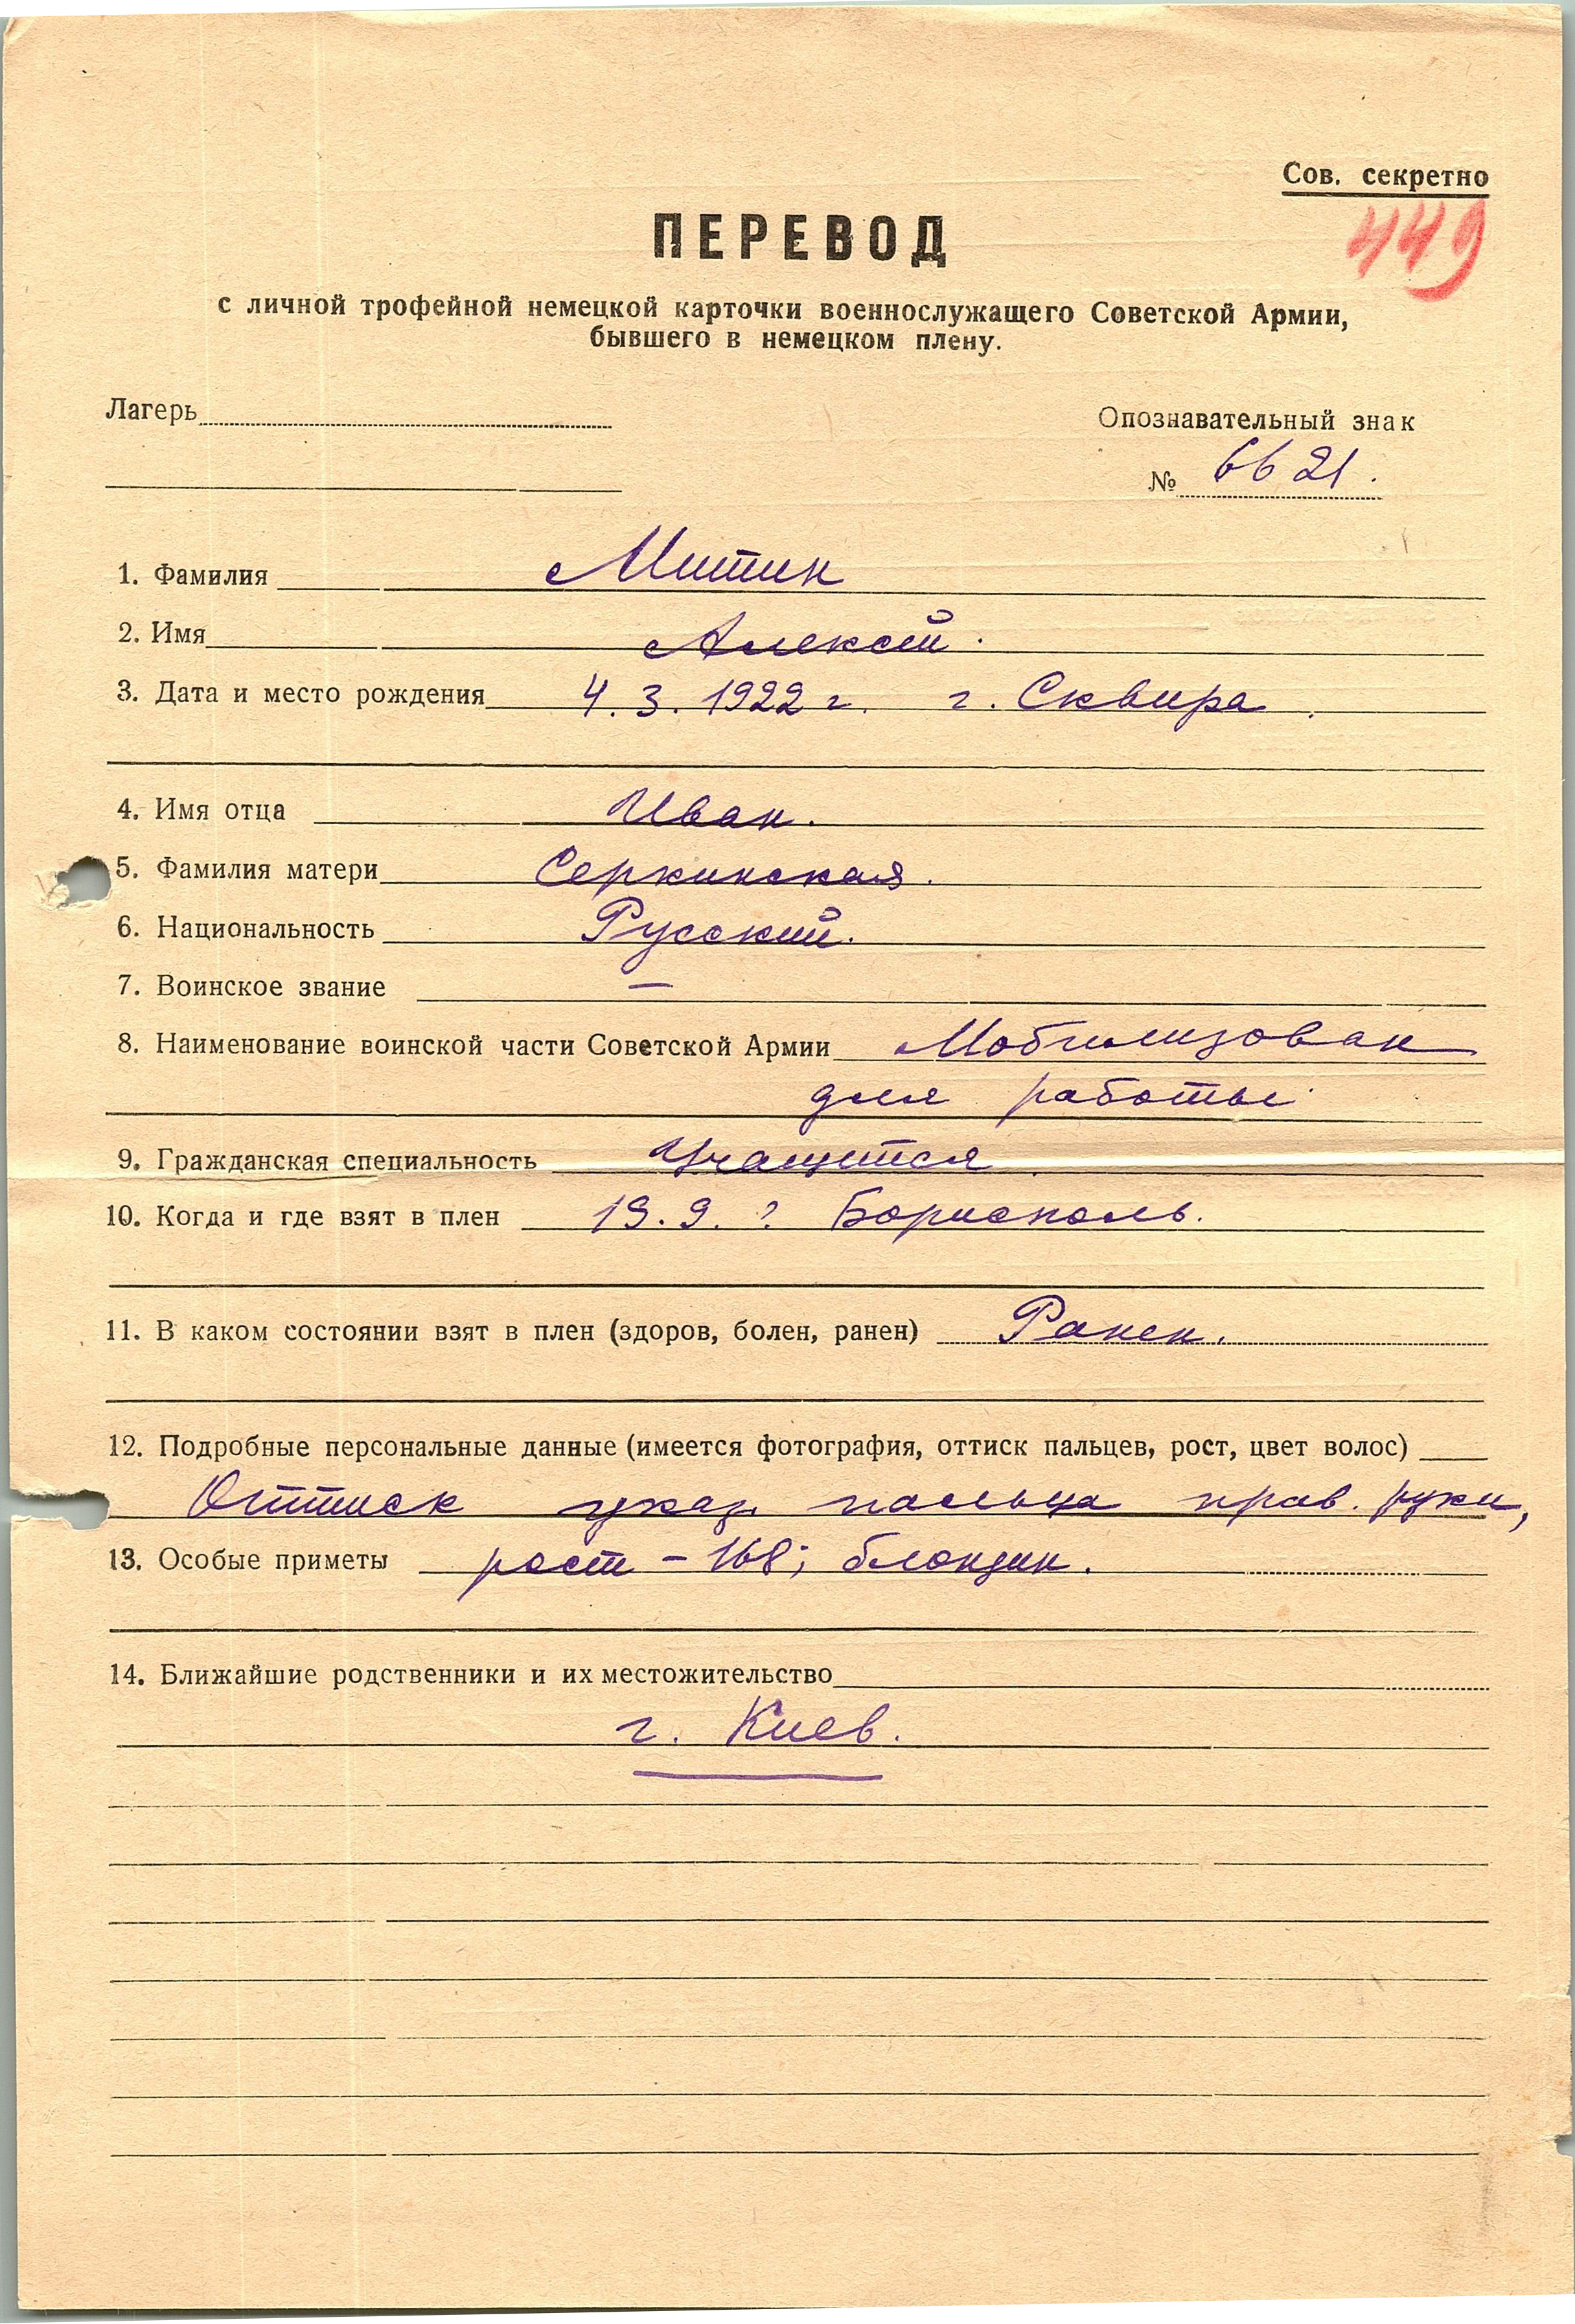 Сов. секретно
449
ПЕРЕВОД
с личной трофейной немецкой карточки военнослужащего Советской Армии,
бывшего в немецком плену.
Лагерь
Опознавательный знак
№ 6621.
1. Фамилия Митин
2. Имя Алексей.
3. Дата и место рождения 4.3.1922 г. г. Сквира.
4. Имя отца Иван.
5. Фамилия матери Серкинская.
6. Национальность Русский.
7. Воинское звание —
8. Наименование воинской части Советской Армии Мобилизован
для работы
9. Гражданская специальность Учащийся.
10. Когда и где взят в плен 19.9. ? Борисполь.
11. В каком состоянии взят в плен (здоров, болен, ранен) Ранен.
12. Подробные персональные данные (имеется фотография, оттиск пальцев, рост, цвет волос)
Оттиск указ. пальца прав. руки,
13. Особые приметы рост – 168; блондин.
14. Ближайшие родственники и их местожительство
г. Киев.